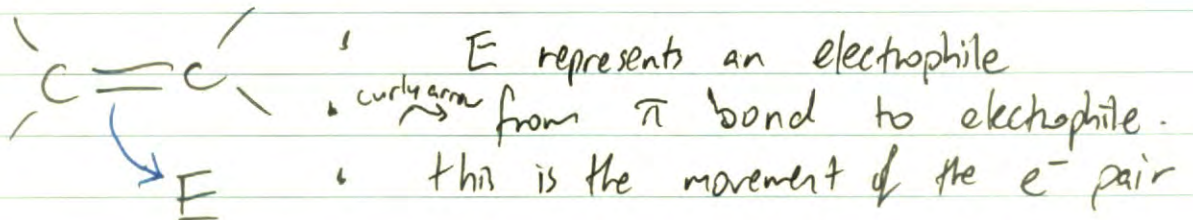 C = C
• E represents an electrophile
• curly arrow from π bond to electrophile.
E • this is the movement of the e⁻ pair